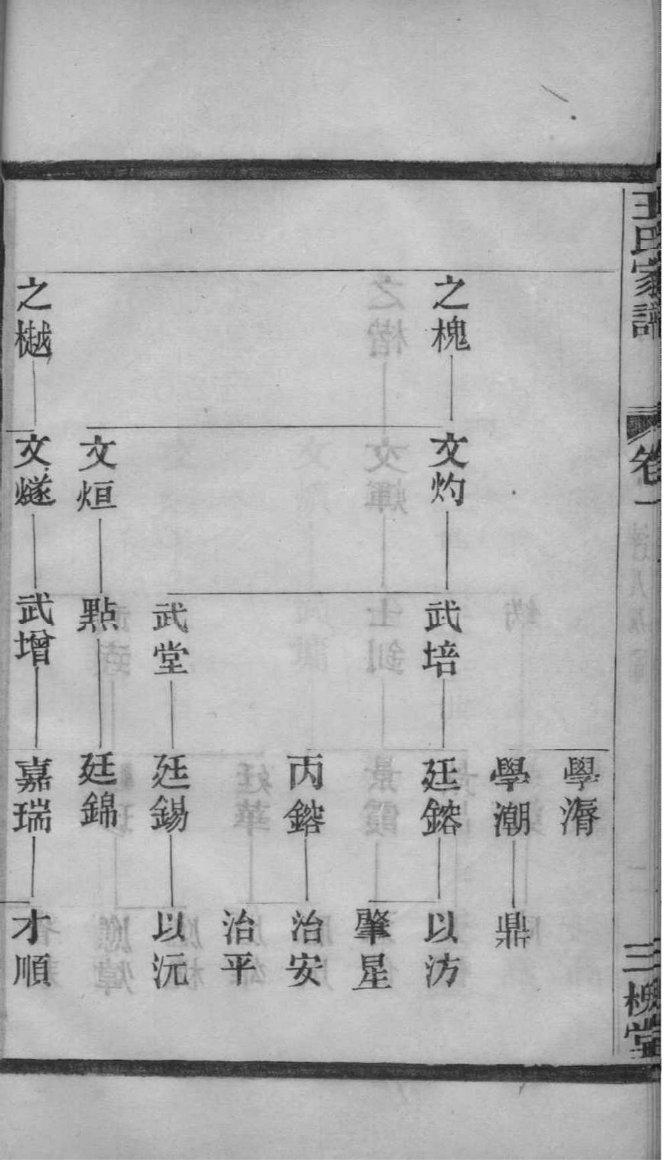 王氏家譜
卷一
三槐堂
之槐
之樾
文灼
文烜
文燧
武培
武堂
點
武增
學溽
學潮
廷鎔
丙鎔
廷錫
廷錦
嘉瑞
鼎
以汸
肇星
治安
治平
以沅
才順